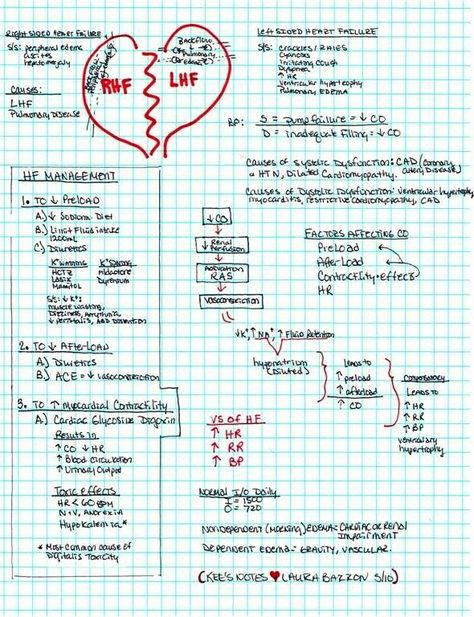 Right sided Heart Failure
S/S: peripheral edema
ascites
hepatomegaly
Causes:
LHF
Pulmonary Disease
RHF
LHF
Backflow
Left SIDED HEART FAILURE
S/S: crackles/RALES
Cyanosis
Irritating cough
Dyspnea
↑ HR
Ventricular hypertrophy
Pulmonary EDEMA
S = Pump failure = ↓ CO
D = inadequate filling = ↓ CO
Causes of Systolic Dysfunction: CAD (Coronary artery Disease)
HTN, Dilated Cardiomyopathy.
Causes of Diastolic Dysfunction: ventricular hypertrophy
myocarditis, restrictive cardiomyopathy, CAD
HF MANAGEMENT
1. TO ↓ PRELOAD
A.) ↓ Sodium Diet
B.) Limit Fluid intake
1200ml
C.) Diuretics
K+ wasting
HCTZ
Lasix
Manitol
K+ Sparing
Aldactone
Dyrenium
S/S: ↓ K+:
muscle wasting,
Dizziness, Arrythmia
↓ peristalsis, ABD Distention
2. TO ↓ AfterLOAD
A.) Diuretics
B.) ACE = ↓ vasoconstriction
3. TO ↑ Myocardial Contractility
A.) Cardiac Glycoside Digoxin
Results in
↑ CO ↓ HR
↑ Blood Circulation
↑ Urinary Output
Toxic effects
HR < 60 BPM
N+V, Anorexia
Hypokalemia*
* Most Common cause of
Digitalis Toxicity
↓ CO
↓ Renal
Perfusion
Activation
RAS
Vasoconstriction
↓K+, ↑ NA+, ↑ Fluid Retention
hyponatrium
(Diluted)
Leads to
↑ preload
↑ afterload
↑ CO
Leads to
↑ HR
↑ RR
↑ BP
ventricular
hypertrophy
FACTORS AFFECTING CO
Preload
AfterLoad
Contractility • effects
HR
VS OF HF
↑ HR
↑ RR
↑ BP
NORMAL I/O Daily
I = 1500
O = 720
NONDEPENDENT (MORNING) EDEMA: CARDIAC OR RENAL
IMPAIRMENT
DEPENDENT EDEMA: GRAVITY, VASCULAR.
(KEE'S NOTES ♥ LAURA BAZZON 5/10)